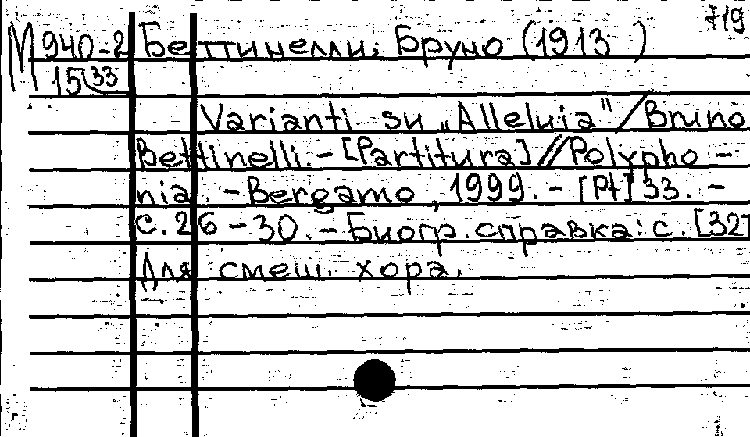 719
М 940-2 Беттинелли, Бруно (1913 )
15 33
Varianti su „Alleluia"/Bruno
Bettinelli. - [Partitura] // Polypho -
nia. - Bergamo, 1999. - [Pt] 33. -
С. 26-30. - Биогр. справка: с. [32]
Для смеш. хора.